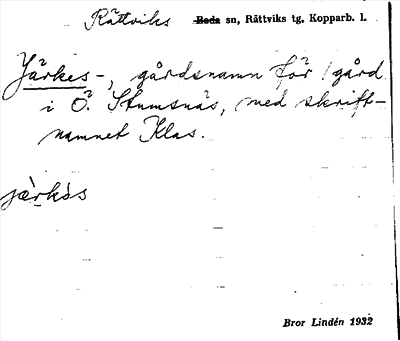 Rättviks Boda sn, Rättviks tg, Kopparb. l.
Järkes-, gårdsnamn för 1 gård
i Ö. Stumsnäs, med skrift-
namnet Klas.
jæ̀rkə̀s
Bror Lindén 1932